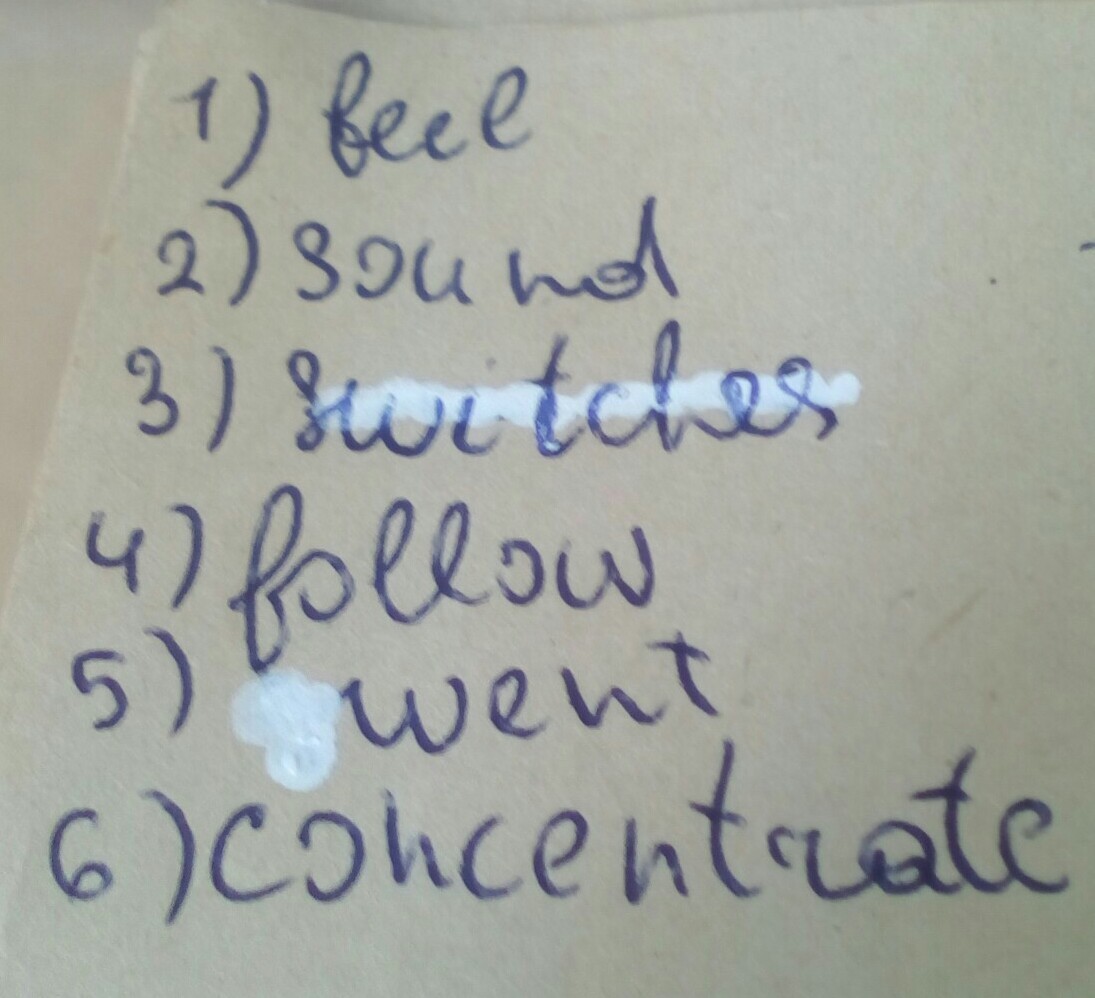 1) feel
2) sound
3) switches
4) follow
5) went
6) concentrate